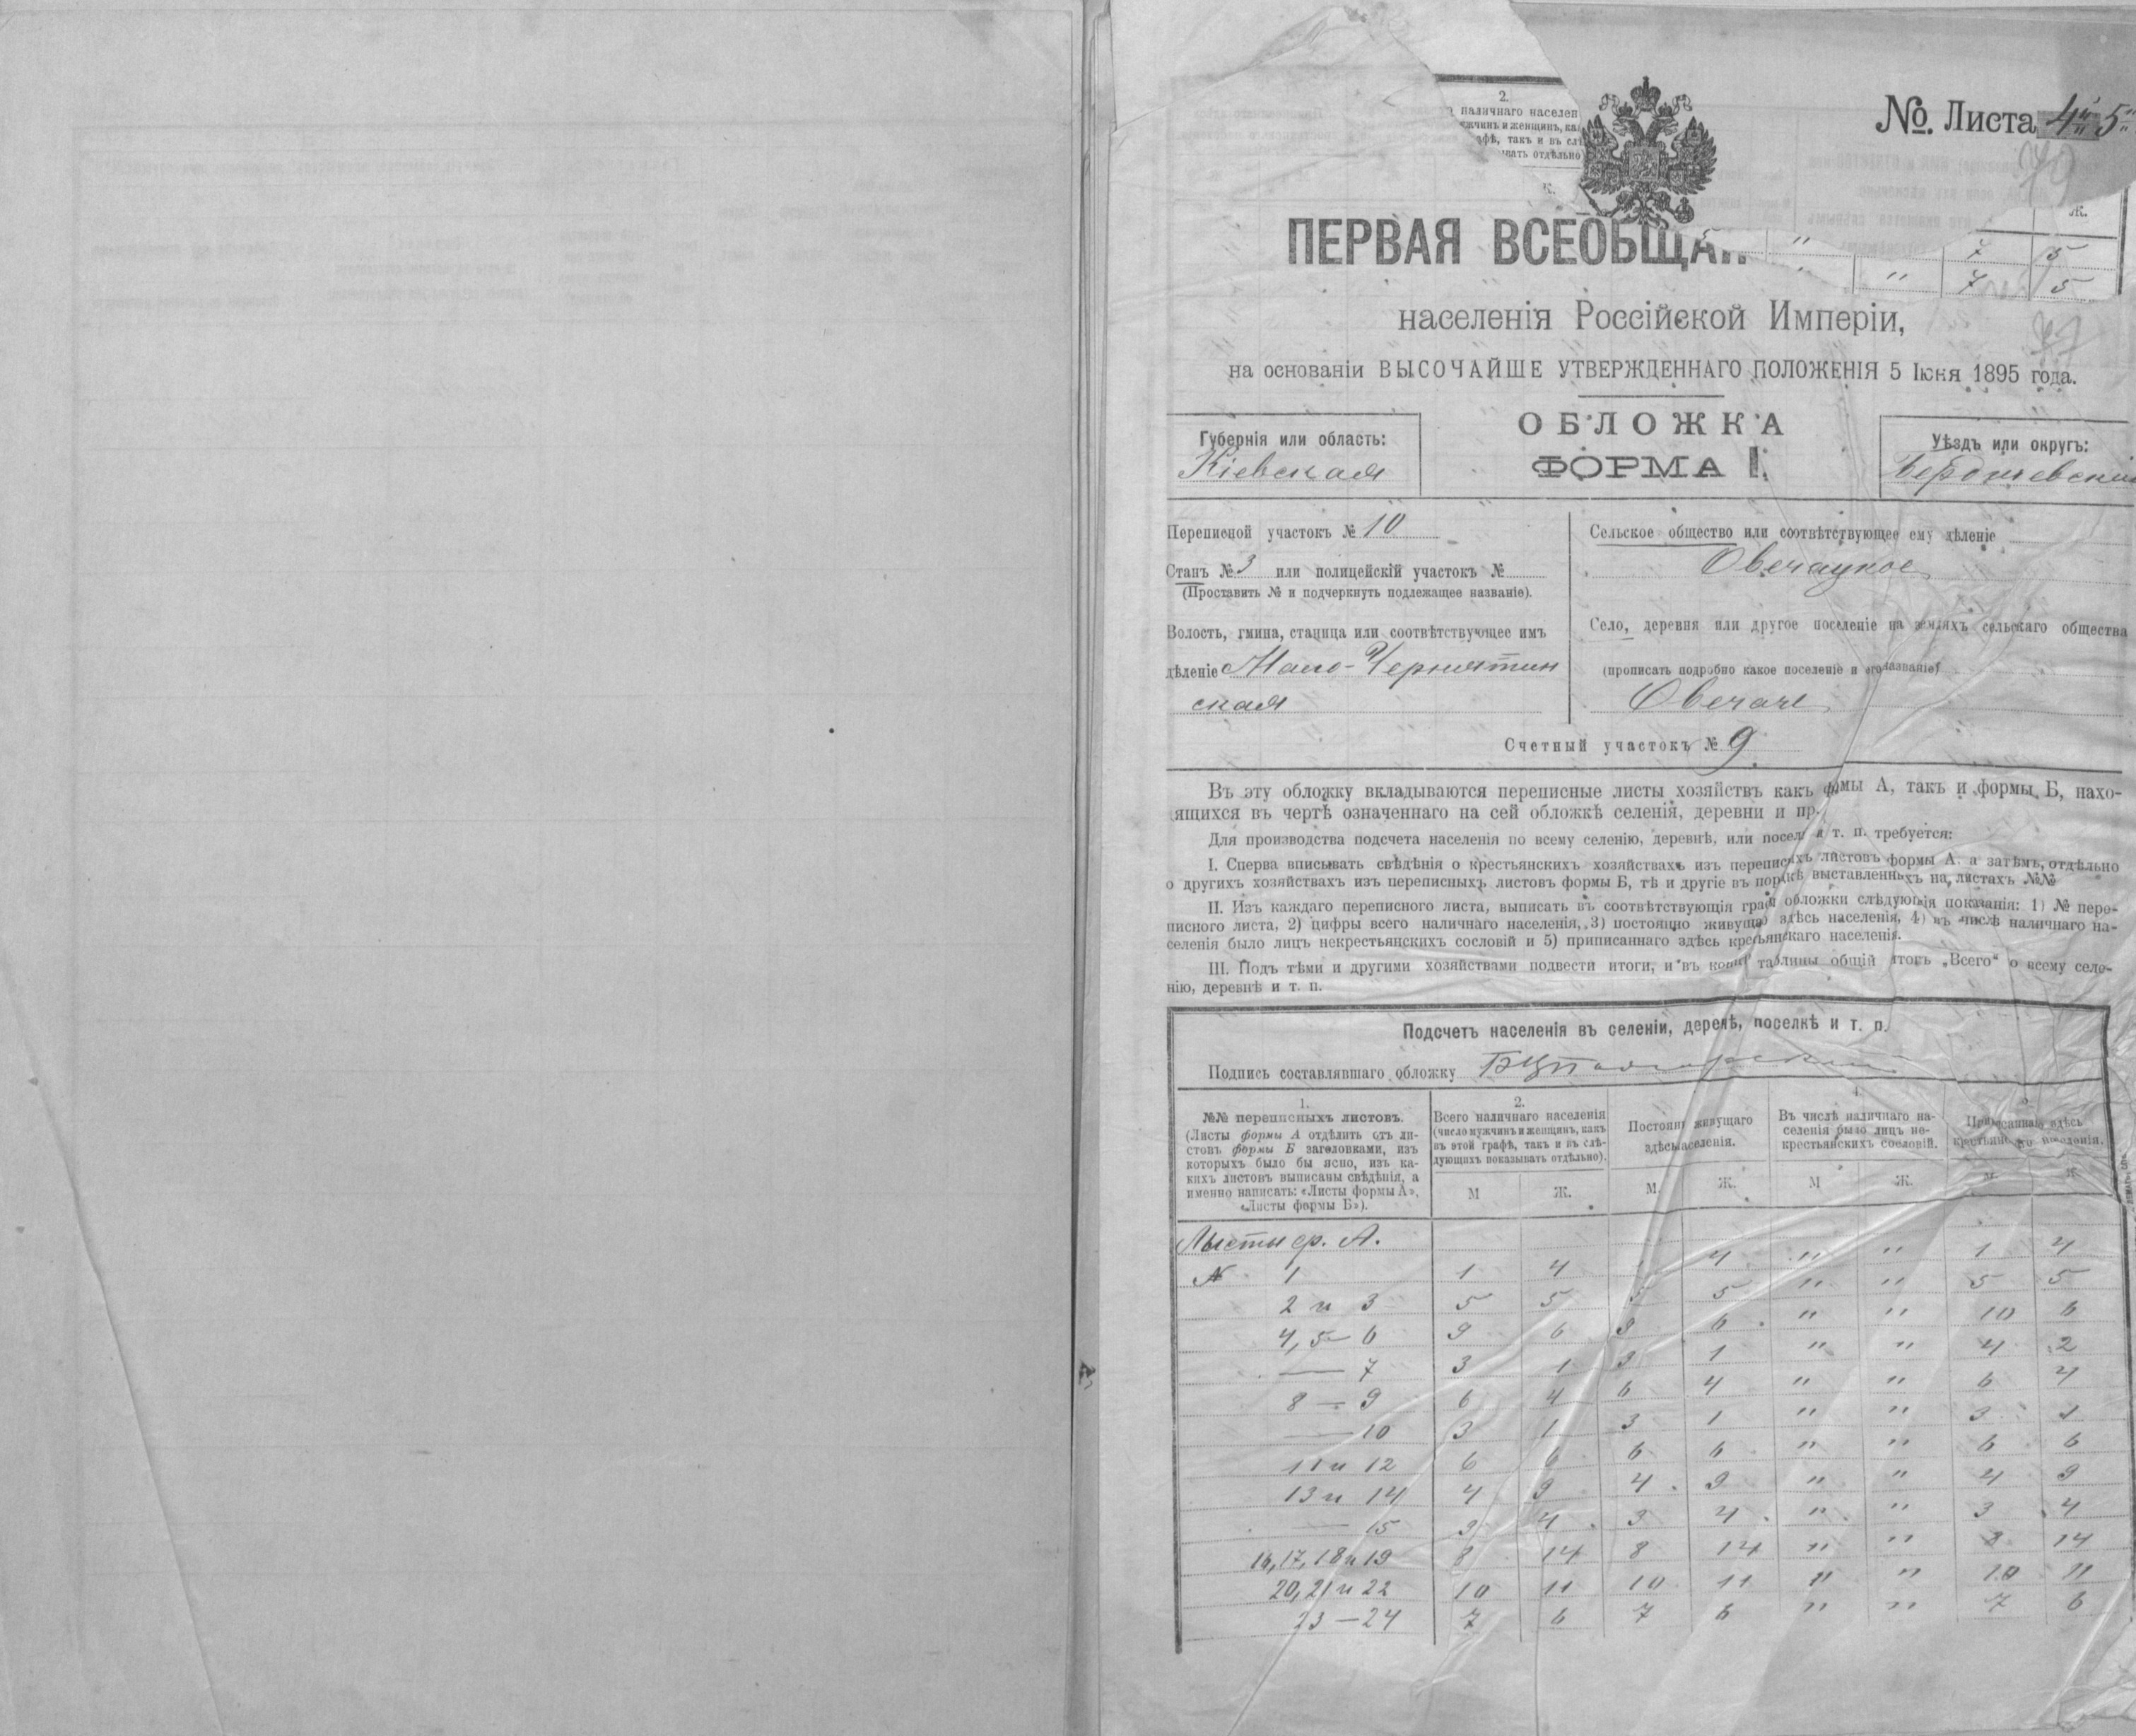 №. Листа 4 5
2.
наличнаго населен
ать отдѣльно
ж.
Ж.
7 5
" 7 5
ПЕРВАЯ ВСЕОБЩА
населенія Россійской Имперіи,
на основаніи ВЫСОЧАЙШЕ УТВЕРЖДЕННАГО ПОЛОЖЕНІЯ 5 Іюня 1895 года.
ОБЛОЖКА
ФОРМА I.
Губернія или область:
Кіевская
Уѣздъ или округъ:
Переписной участокъ № 10
Станъ № 3 или полицейскій участокъ №
(Проставить № и подчеркнуть подлежащее названіе).
Волость, гмина, станица или соотвѣтствующее имъ
дѣленіе Мало-Чернятин
ская
Сельское общество или соотвѣтствующее ему дѣленіе
Овечацкое
Село, деревня или другое поселеніе на земляхъ сельскаго общества
(прописать подробно какое поселеніе и его названіе)
Овечаче
Счетный участокъ № 9
Въ эту обложку вкладываются переписные листы хозяйствъ какъ формы А, такъ и формы Б, нахо-
ящихся въ чертѣ означеннаго на сей обложкѣ селенія, деревни и пр.
Для производства подсчета населенія по всему селенію, деревнѣ, или посел и т. п. требуется:
I. Сперва вписывать свѣдѣнія о крестьянскихъ хозяйствахъ изъ переписхъ листовъ формы А. а затѣмъ, отдѣльно
о другихъ хозяйствахъ изъ переписныхъ листовъ формы Б, тѣ и другіе въ поркѣ выставленныхъ на листахъ №№
II. Изъ каждаго переписного листа, выписать въ соотвѣтствующія граф обложки слѣдующія показанія: 1) № пере-
писного листа, 2) цифры всего наличнаго населенія, 3) постоянно живущаго здѣсь населенія, 4) въ числѣ наличнаго на-
селенія было лицъ некрестьянскихъ сословій и 5) приписаннаго здѣсь крестьянскаго населенія.
III. Подъ тѣми и другими хозяйствами подвести итоги, и въ концѣ таблицы общій итогъ „Всего“ о всему селе-
нію, деревнѣ и т. п.
Подсчетъ населенія въ селеніи, деревнѣ, поселкѣ и т. п.
Подпись составлявшаго обложку
1.
№№ переписныхъ листовъ.
(Листы формы А отдѣлить отъ ли-
стовъ формы Б заголовками, изъ
которыхъ было бы ясно, изъ ка-
кихъ листовъ выписаны свѣдѣнія, а
именно написать: «Листы формы А»,
«Листы формы Б»).
2.
Всего наличнаго населенія
(число мужчинъ и женщинъ, какъ
въ этой графѣ, такъ и въ слѣ-
дующихъ показывать отдѣльно).
Постоянн живущаго
здѣсь населенія.
4.
Въ числѣ наличнаго на-
селенія было лицъ не-
крестьянскихъ сословій.
Приписаннаго здѣсь
населенія.
М Ж. М. Ж. М Ж. М Ж
Листы ф. А.
№ 1 1 4 4 " " 1 4
2 и 3 5 5 5 5 " " 5 5
4, 5 — 6 9 6 9 6 " " 10 6
— 7 3 1 3 1 " " 4 2
8 — 9 6 4 6 4 " " 6 4
— 10 3 1 3 1 " " 3
11 и 12 6 6 6 6 " " 6 6
13 и 14 4 9 4 9 " " 4 9
— 15 3 4 3 4 " " 3 4
16, 17, 18 и 19 8 14 8 14 " " 8 14
20, 21 и 22 10 11 10 11 " " 10 11
23 — 24 7 6 7 6 " " 7 6